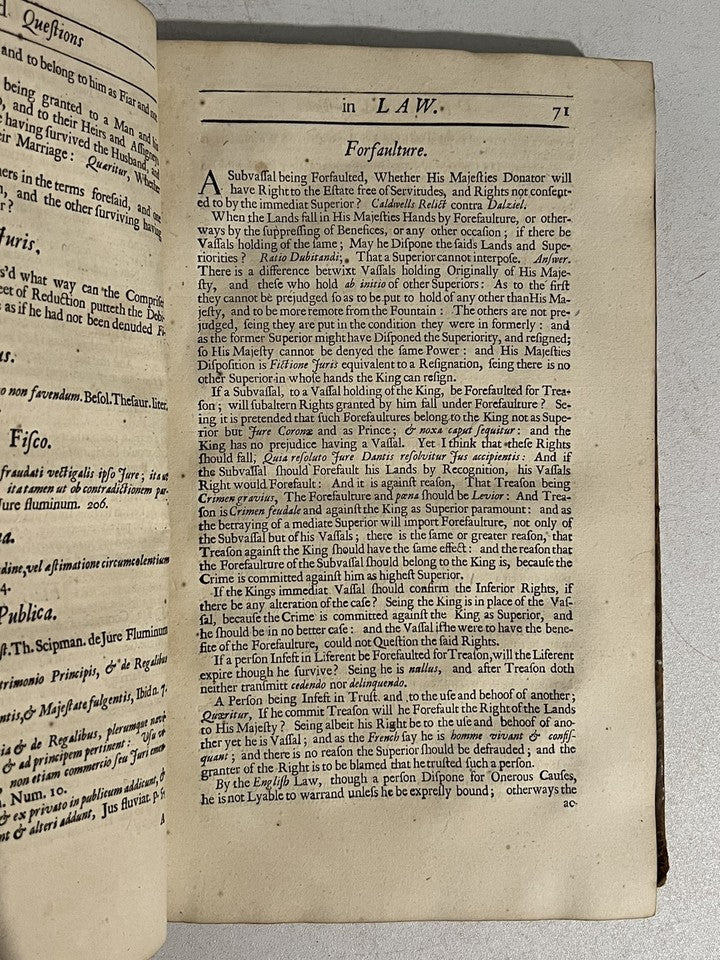 d Questions
and to belong to him as Fiar and not
being granted to a Man and his
, and to their Heirs and Assigneys
having survived the Husband, and
eir Marriage: Quæritur, Whether
ners in the terms foresaid, and one
n, and the other surviving having
r?
Juris.
s'd what way can the Comprise
eet of Reduction putteth the Deb
as if he had not been denuded Fi
us.
o non favendum. Besol. Thesaur. liter.
Fisco.
fraudati vectigalis ipso Jure; ita ut
ita tamen ut ob contradictionem par
Jure fluminum. 206.
a.
dine, vel æstimatione circumcolentium
4.
Publica.
st. Th. Scipman. de Jure Fluminum
trimonio Principis, & de Regalibus
entis, & Majestate fulgentis, Ibid n. 7.
ia & de Regalibus, plerumque
& ad principem pertinent: Usu
non etiam commercio seu Juri
. Num. 10.
& ex privato in publicum addicunt, &
nt & alteri addunt, Jus fluviat. p.
A
in LAW. 71
Forfaulture.
A Subvassal being Forfaulted, Whether His Majesties Donator will
have Right to the Estate free of Servitudes, and Rights not consent-
ed to by the immediat Superior? Caldwells Relict contra Dalziel.
When the Lands fall in His Majesties Hands by Forefaulture, or other-
ways by the suppressing of Benefices, or any other occasion; if there be
Vassals holding of the same; May he Dispone the saids Lands and Supe-
riorities? Ratio Dubitandi; That a Superior cannot interpose. Answer.
There is a difference betwixt Vassals holding Originally of His Maje-
sty, and these who hold ab initio of other Superiors: As to the first
they cannot be prejudged so as to be put to hold of any other than His Ma-
jesty, and to be more remote from the Fountain: The others are not pre-
judged, seing they are put in the condition they were in formerly: and
as the former Superior might have Disponed the Superiority, and resigned;
so His Majesty cannot be denyed the same Power: and His Majesties
Disposition is Fictione Juris equivalent to a Resignation, seing there is no
other Superior in whose hands the King can resign.
If a Subvassal, to a Vassal holding of the King, be Forefaulted for Trea-
son; will subaltern Rights granted by him fall under Forefaulture? Se-
ing it is pretended that such Forefaultures belong to the King not as Supe-
rior but Jure Coronæ and as Prince; & noxa caput sequitur: and the
King has no prejudice having a Vassal. Yet I think that these Rights
should fall, Quia resoluto Jure Dantis resolvitur Jus accipientis: And if
the Subvassal should Forefault his Lands by Recognition, his Vassals
Right would Forefault: And it is against reason, That Treason being
Crimen gravius, The Forefaulture and pœna should be Levior: And Trea-
son is Crimen feudale and against the King as Superior paramount: and as
the betraying of a mediate Superior will import Forefaulture, not only of
the Subvassal but of his Vassals; there is the same or greater reason, that
Treason against the King should have the same effect: and the reason that
the Forefaulture of the Subvassal should belong to the King is, because the
Crime is committed against him as highest Superior.
If the Kings immediat Vassal should confirm the Inferior Rights, if
there be any alteration of the case? Seing the King is in place of the Vas-
sal, because the Crime is committed against the King as Superior, and
he should be in no better case: and the Vassal if he were to have the bene-
fite of the Forefaulture, could not Question the said Rights.
If a person Infest in Liferent be Forefaulted for Treason, will the Liferent
expire though he survive? Seing he is nullus, and after Treason doth
neither transmitt cedendo nor delinquendo.
A Person being Infest in Trust. and to the use and behoof of another;
Quæritur, If he commit Treason will he Forefault the Right of the Lands
to His Majesty? Seing albeit his Right be to the use and behoof of ano-
ther yet he is Vassal; and as the French say he is homme vivant & confis-
quant; and there is no reason the Superior should be defrauded; and the
granter of the Right is to be blamed that he trusted such a person.
By the English Law, though a person Dispone for Onerous Causes,
he is not Lyable to warrand unless he be expresly bound; otherways the
ac-